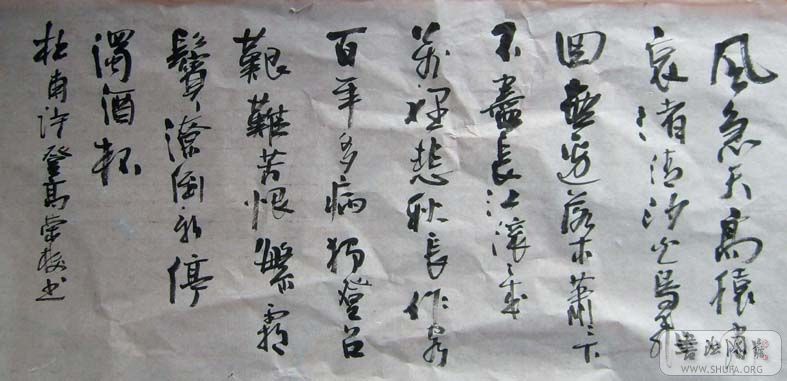 风急天高猿
哀渚清沙白鳥飛
回無邊落木蕭〻下
不盡長江滚〻来
萬裡悲秋長作客
百年多病獨登台
艱難苦恨繁霜
鬢潦倒新停
濁酒杯
杜甫诗登高荣梅书
書法
WWW.SHUFA.ORG